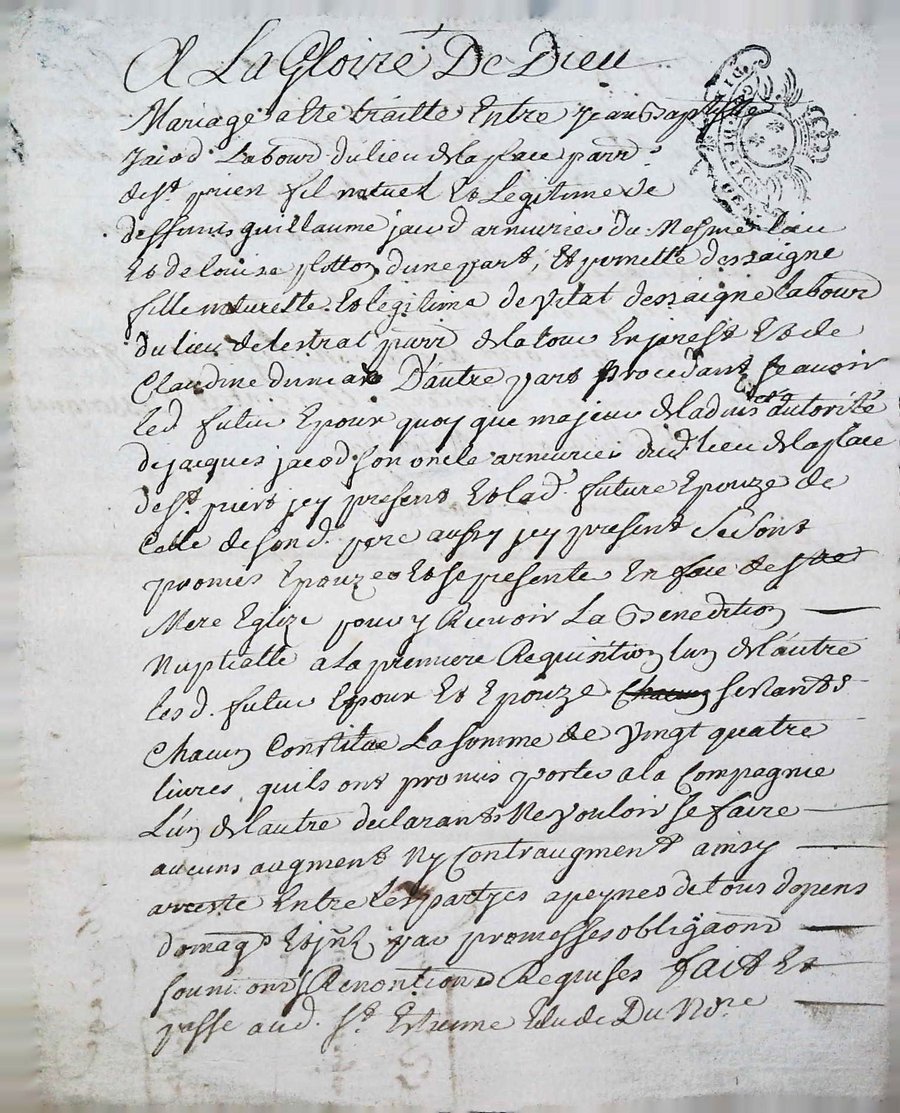 A La Gloire De Dieu
Mariage a ete traitte Entre Jean Baptiste
Jacod Labour du lieu de la place parr.
de st. priest fil naturel et Legitime de
deffunts guillaume jacod armurier du Mesme lieu
Et de louise flotton dune part, et pernette dessaigne
fille naturelle et legitime de vital dessaigne labour
du lieu de lestrat parr de la tour En jarest et de
Claudine dumas D'autre part procedant scavoir
led. futur Epoux quoy que majeur de ladvis et autorité
de jacques jacod son oncle armurier dud. lieu de la place
de st. priest jcy present et lad. future Epouze de
Celle de sond. pere aussy jcy present se sont
promis Epouzer et se presenter En face de ste
Mere Eglize pour y Recevoir La Benedition
Nuptialle a la premiere Requisition lun de lautre
lesd. futur Epoux et Epouze Chacun se
Chacun Constitue La somme de vingt quatre
livres quils ont promis porter a la Compagnie
L'un de lautre declarants Ne vouloir se faire
aucuns augment Ny Contraugment ainsy
arreste Entre les partyes a peynes de tous depens
domag et jnt par promesses obligaons
soumions Renontions Requises fait et
passe aud. st. Etienne Etude Du Nore